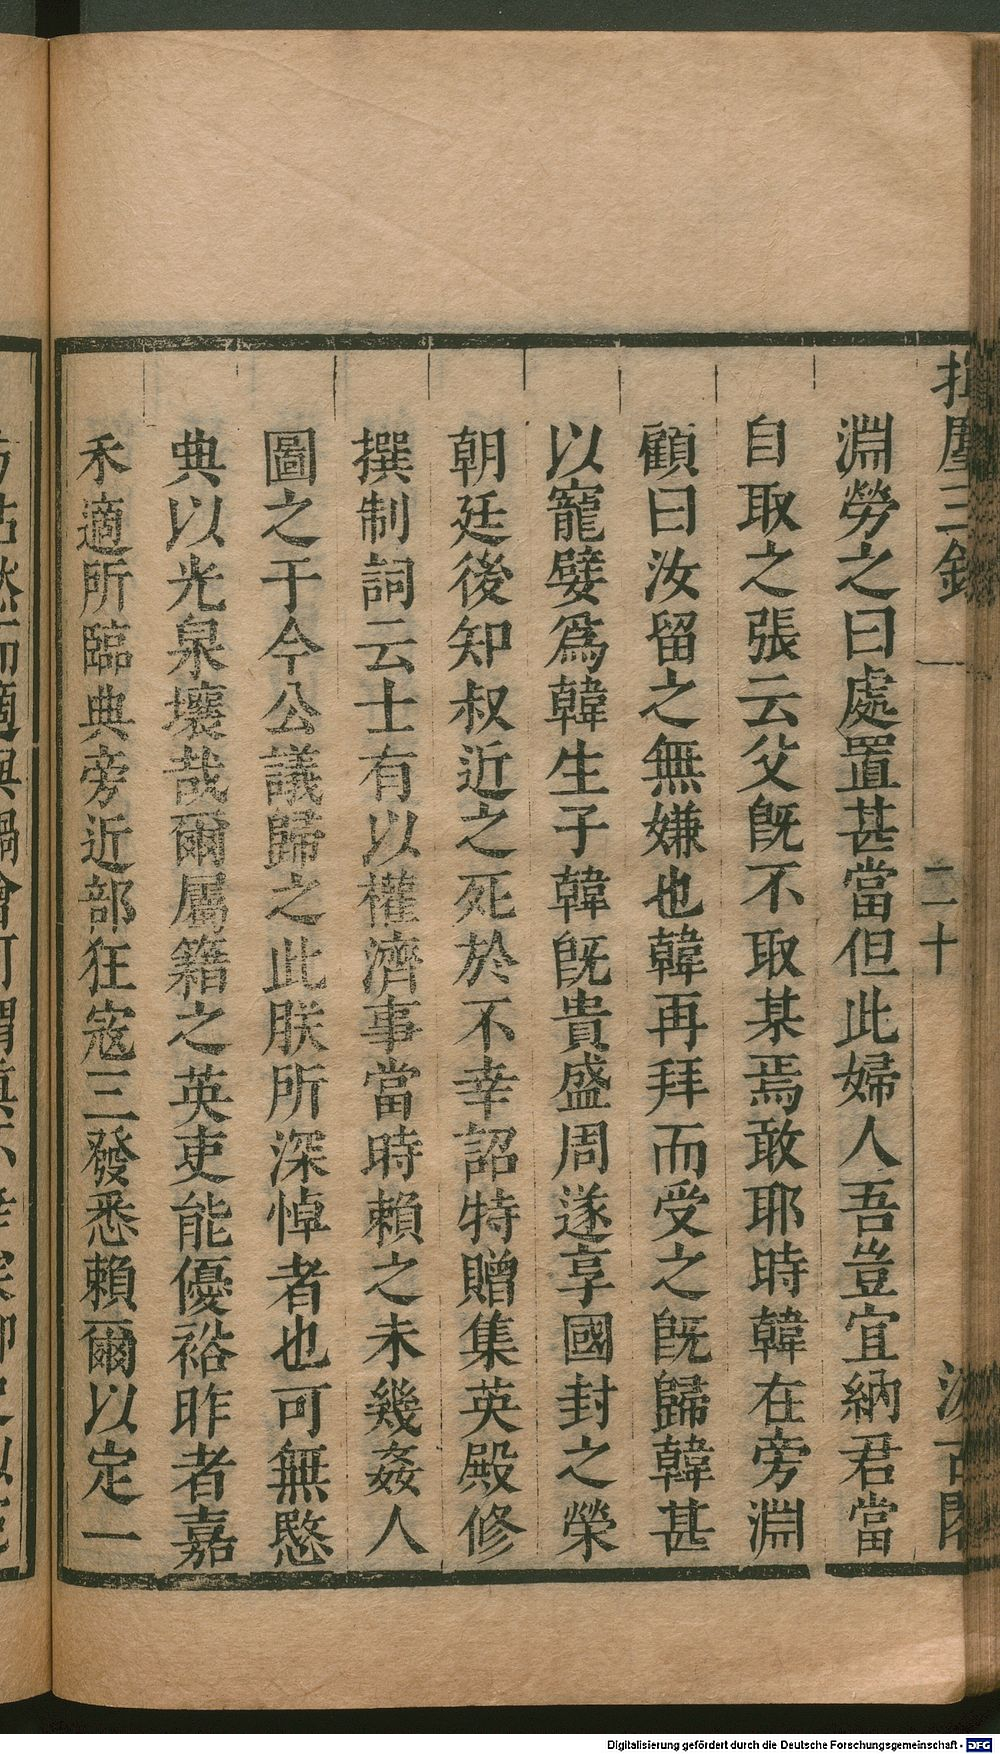 揮麈三錄
一
二十
汲古閣
淵勞之曰處置甚當但此婦人吾豈宜納君當
自取之張云父旣不取某焉敢耶時韓在旁淵
顧曰汝留之無嫌也韓再拜而受之旣歸韓甚
以寵嬖爲韓生子韓旣貴盛周遂享國封之榮
朝廷後知叔近之死於不幸詔特贈集英殿修
撰制詞云士有以權濟事當時賴之未幾姦人
圖之于今公議歸之此朕所深悼者也可無愍
典以光泉壤哉爾屬籍之英吏能優裕昨者嘉
禾適所臨典旁近部狂寇三發悉賴爾以定一
Digitalisierung gefördert durch die Deutsche Forschungsgemeinschaft - DFG